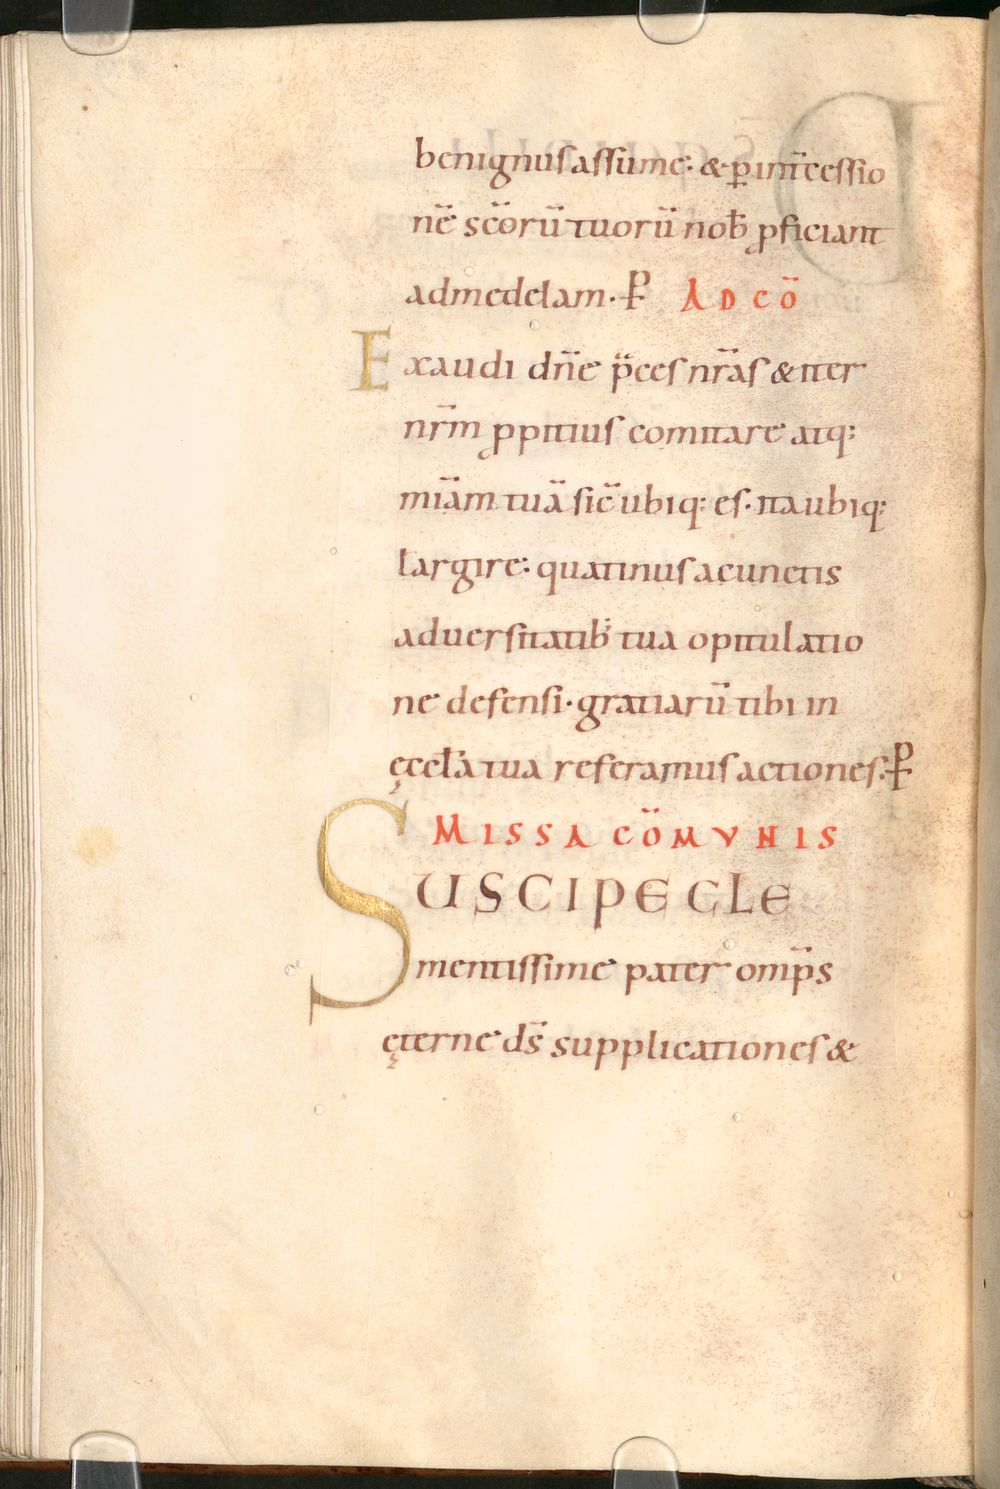 benignus assume· & ꝑ int̄cessio
nē sc̄orū tuorū nob̄ ꝓficiant
ad medelam· ₽ AD CŌ
Exaudi dn̄e p̄ces nr̄as & iter
nr̄m ꝓpitius comitare atq:
miām tuā sic̄ ubiq: es· ita ubiq:
largire: quatinus a cunctis
aduersitatib: tua opitulatio
ne defensi· gratiarū tibi in
ęccl̄a tua referamus actiones: ₽
MISSA CŌMVNIS
SUSCIPE CLE
mentissime pater omp̄s
ęterne ds̄ supplicationes &